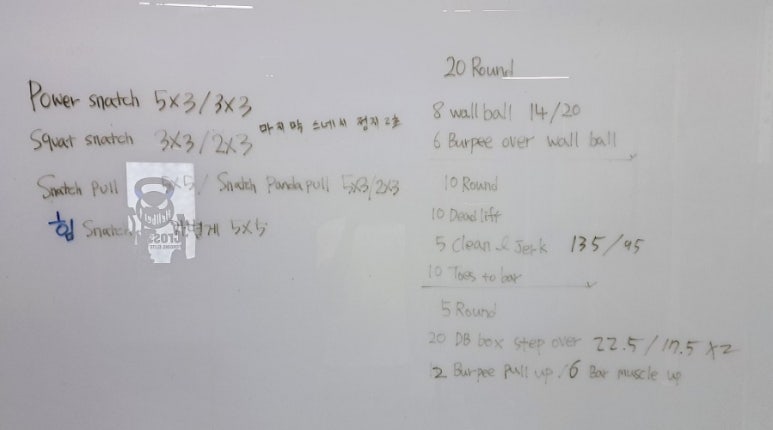 Power snatch 5x3/3x3
Squat snatch 3x3/2x3 마지막 스네치 정지 2초
Snatch Pull 5x5/ Snatch Panda pull 5x3/2x3
힙 Snatch 가볍게 5x5
20 Round
8 wall ball 14/20
6 Burpee over wall ball
10 Round
10 Dead lift
5 Clean & Jerk 135/95
10 Toes to bar
5 Round
20 DB box step over 22.5/17.5 x2
12 Burpee pull up /6 Bar muscle up